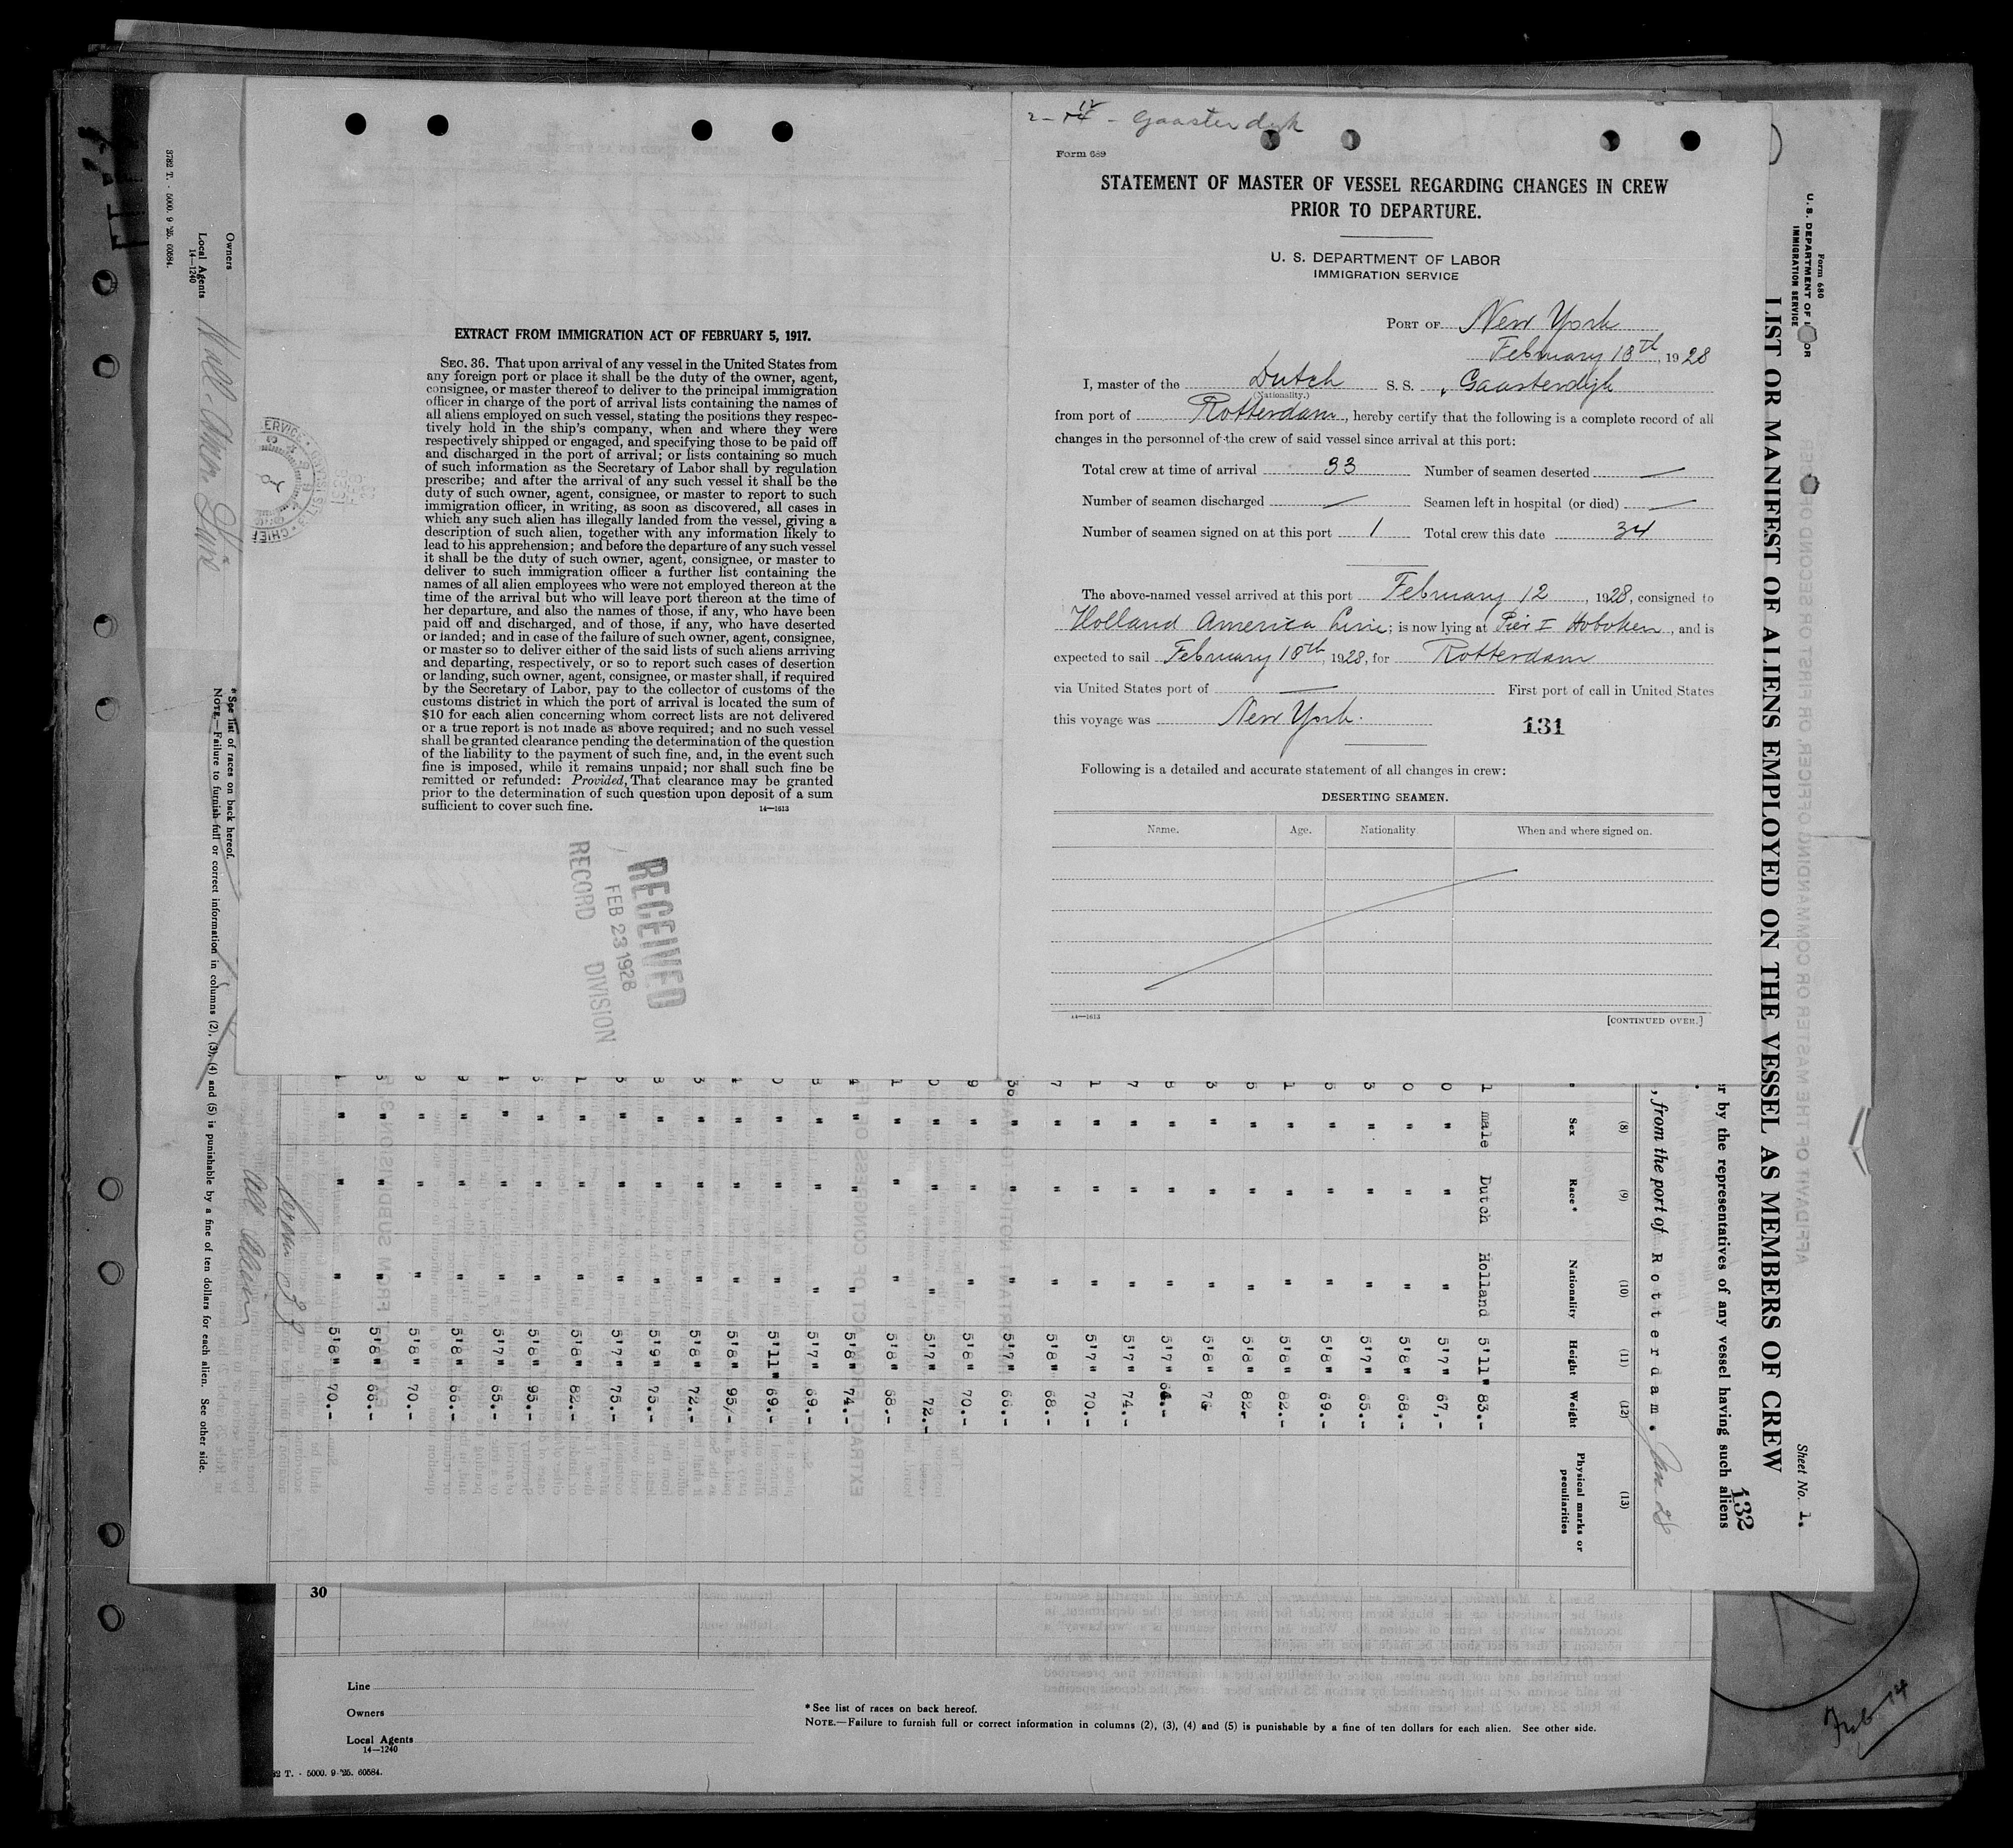 2-12 - Gaasterdyk
Form 689
STATEMENT OF MASTER OF VESSEL REGARDING CHANGES IN CREW
PRIOR TO DEPARTURE.
U. S. DEPARTMENT OF LABOR
IMMIGRATION SERVICE
PORT OF New York
February 18th, 1928
I, master of the Dutch S. S. Gaasterdijk
(Nationality.)
from port of Rotterdam, hereby certify that the following is a complete record of all
changes in the personnel of the crew of said vessel since arrival at this port:
Total crew at time of arrival 33 Number of seamen deserted —
Number of seamen discharged — Seamen left in hospital (or died) —
Number of seamen signed on at this port 1 Total crew this date 34
The above-named vessel arrived at this port February 12, 1928, consigned to
Holland America Line; is now lying at Pier I Hoboken, and is
expected to sail February 18th, 1928, for Rotterdam
via United States port of — First port of call in United States
this voyage was New York.
131
Following is a detailed and accurate statement of all changes in crew:
DESERTING SEAMEN.
Name. Age. Nationality When and where signed on.
14—1613
[CONTINUED OVER.]
EXTRACT FROM IMMIGRATION ACT OF FEBRUARY 5, 1917.
SEC. 36. That upon arrival of any vessel in the United States from
any foreign port or place it shall be the duty of the owner, agent,
consignee, or master thereof to deliver to the principal immigration
officer in charge of the port of arrival lists containing the names of
all aliens employed on such vessel, stating the positions they respec-
tively hold in the ship's company, when and where they were
respectively shipped or engaged, and specifying those to be paid off
and discharged in the port of arrival; or lists containing so much
of such information as the Secretary of Labor shall by regulation
prescribe; and after the arrival of any such vessel it shall be the
duty of such owner, agent, consignee, or master to report to such
immigration officer, in writing, as soon as discovered, all cases in
which any such alien has illegally landed from the vessel, giving a
description of such alien, together with any information likely to
lead to his apprehension; and before the departure of any such vessel
it shall be the duty of such owner, agent, consignee, or master to
deliver to such immigration officer a further list containing the
names of all alien employees who were not employed thereon at the
time of the arrival but who will leave port thereon at the time of
her departure, and also the names of those, if any, who have been
paid off and discharged, and of those, if any, who have deserted
or landed; and in case of the failure of such owner, agent, consignee,
or master so to deliver either of the said lists of such aliens arriving
and departing, respectively, or so to report such cases of desertion
or landing, such owner, agent, consignee, or master shall, if required
by the Secretary of Labor, pay to the collector of customs of the
customs district in which the port of arrival is located the sum of
$10 for each alien concerning whom correct lists are not delivered
or a true report is not made as above required; and no such vessel
shall be granted clearance pending the determination of the question
of the liability to the payment of such fine, and, in the event such
fine is imposed, while it remains unpaid; nor shall such fine be
remitted or refunded: Provided, That clearance may be granted
prior to the determination of such question upon deposit of a sum
sufficient to cover such fine.
14—1613
RECEIVED
FEB 23 1928
RECORD DIVISION
Form 680
U. S. DEPARTMENT OF
IMMIGRATION SERVICE
LIST OR MANIFEST OF ALIENS EMPLOYED ON THE VESSEL AS MEMBERS OF CREW
Sheet No. 1.
132
er by the representatives of any vessel having such aliens
, from the port of Rotterdam. Jan 28
(8) (9) (10) (11) (12) (13)
Sex Race* Nationality Height Weight Physical marks or peculiarities
1 male Dutch Holland 5'11" 83.-
0 " " " 5'7" 67,-
0 " " " 5'8" 68.-
3 " " " 5'7" 65.-
5 " " " 5'8" 69.-
1 " " " 5'8" 82.-
5 " " " 5'8" 82.
3 " " " 5'8" 76
8 " " " 5'7" 64.-
7 " " " 5'7" 74.-
1 " " " 5'7" 70.-
7 " " " 5'8" 68.-
36 " " " 5'7" 66.-
9 " " " 5'8" 70.-
0 " " " 5'7" 72.-
1 " " " 5'8" 68.-
" " " 5'8" 74.-
" " " 5'7" 69.-
0 " " " 5'11" 69.-
" " " 5'8" 95,-
3 " " " 5'8" 72.-
8 " " " 5'9" 73.-
" " " 5'7" 75.-
1 " " " 5'8" 82.-
" " " 5'8" 95.-
" " " 5'7" 65.-
9 " " " 5'8" 66.-
9 " " " 5'8" 70.-
" " " 5'8" 66.-
" " " 5'8" 70.-
*See list of races on back hereof.
NOTE.—Failure to furnish full or correct information in columns (2), (3), (4) and (5) is punishable by a fine of ten dollars for each alien. See other side.
Owners
Local Agents
14—1240
3782 T. - 5000. 9-'25. 60584.
30
Line
Owners
Local Agents
14—1240
82 T. - 5000. 9-'25. 60584.
*See list of races on back hereof.
NOTE.—Failure to furnish full or correct information in columns (2), (3), (4) and (5) is punishable by a fine of ten dollars for each alien. See other side.
Feb 14